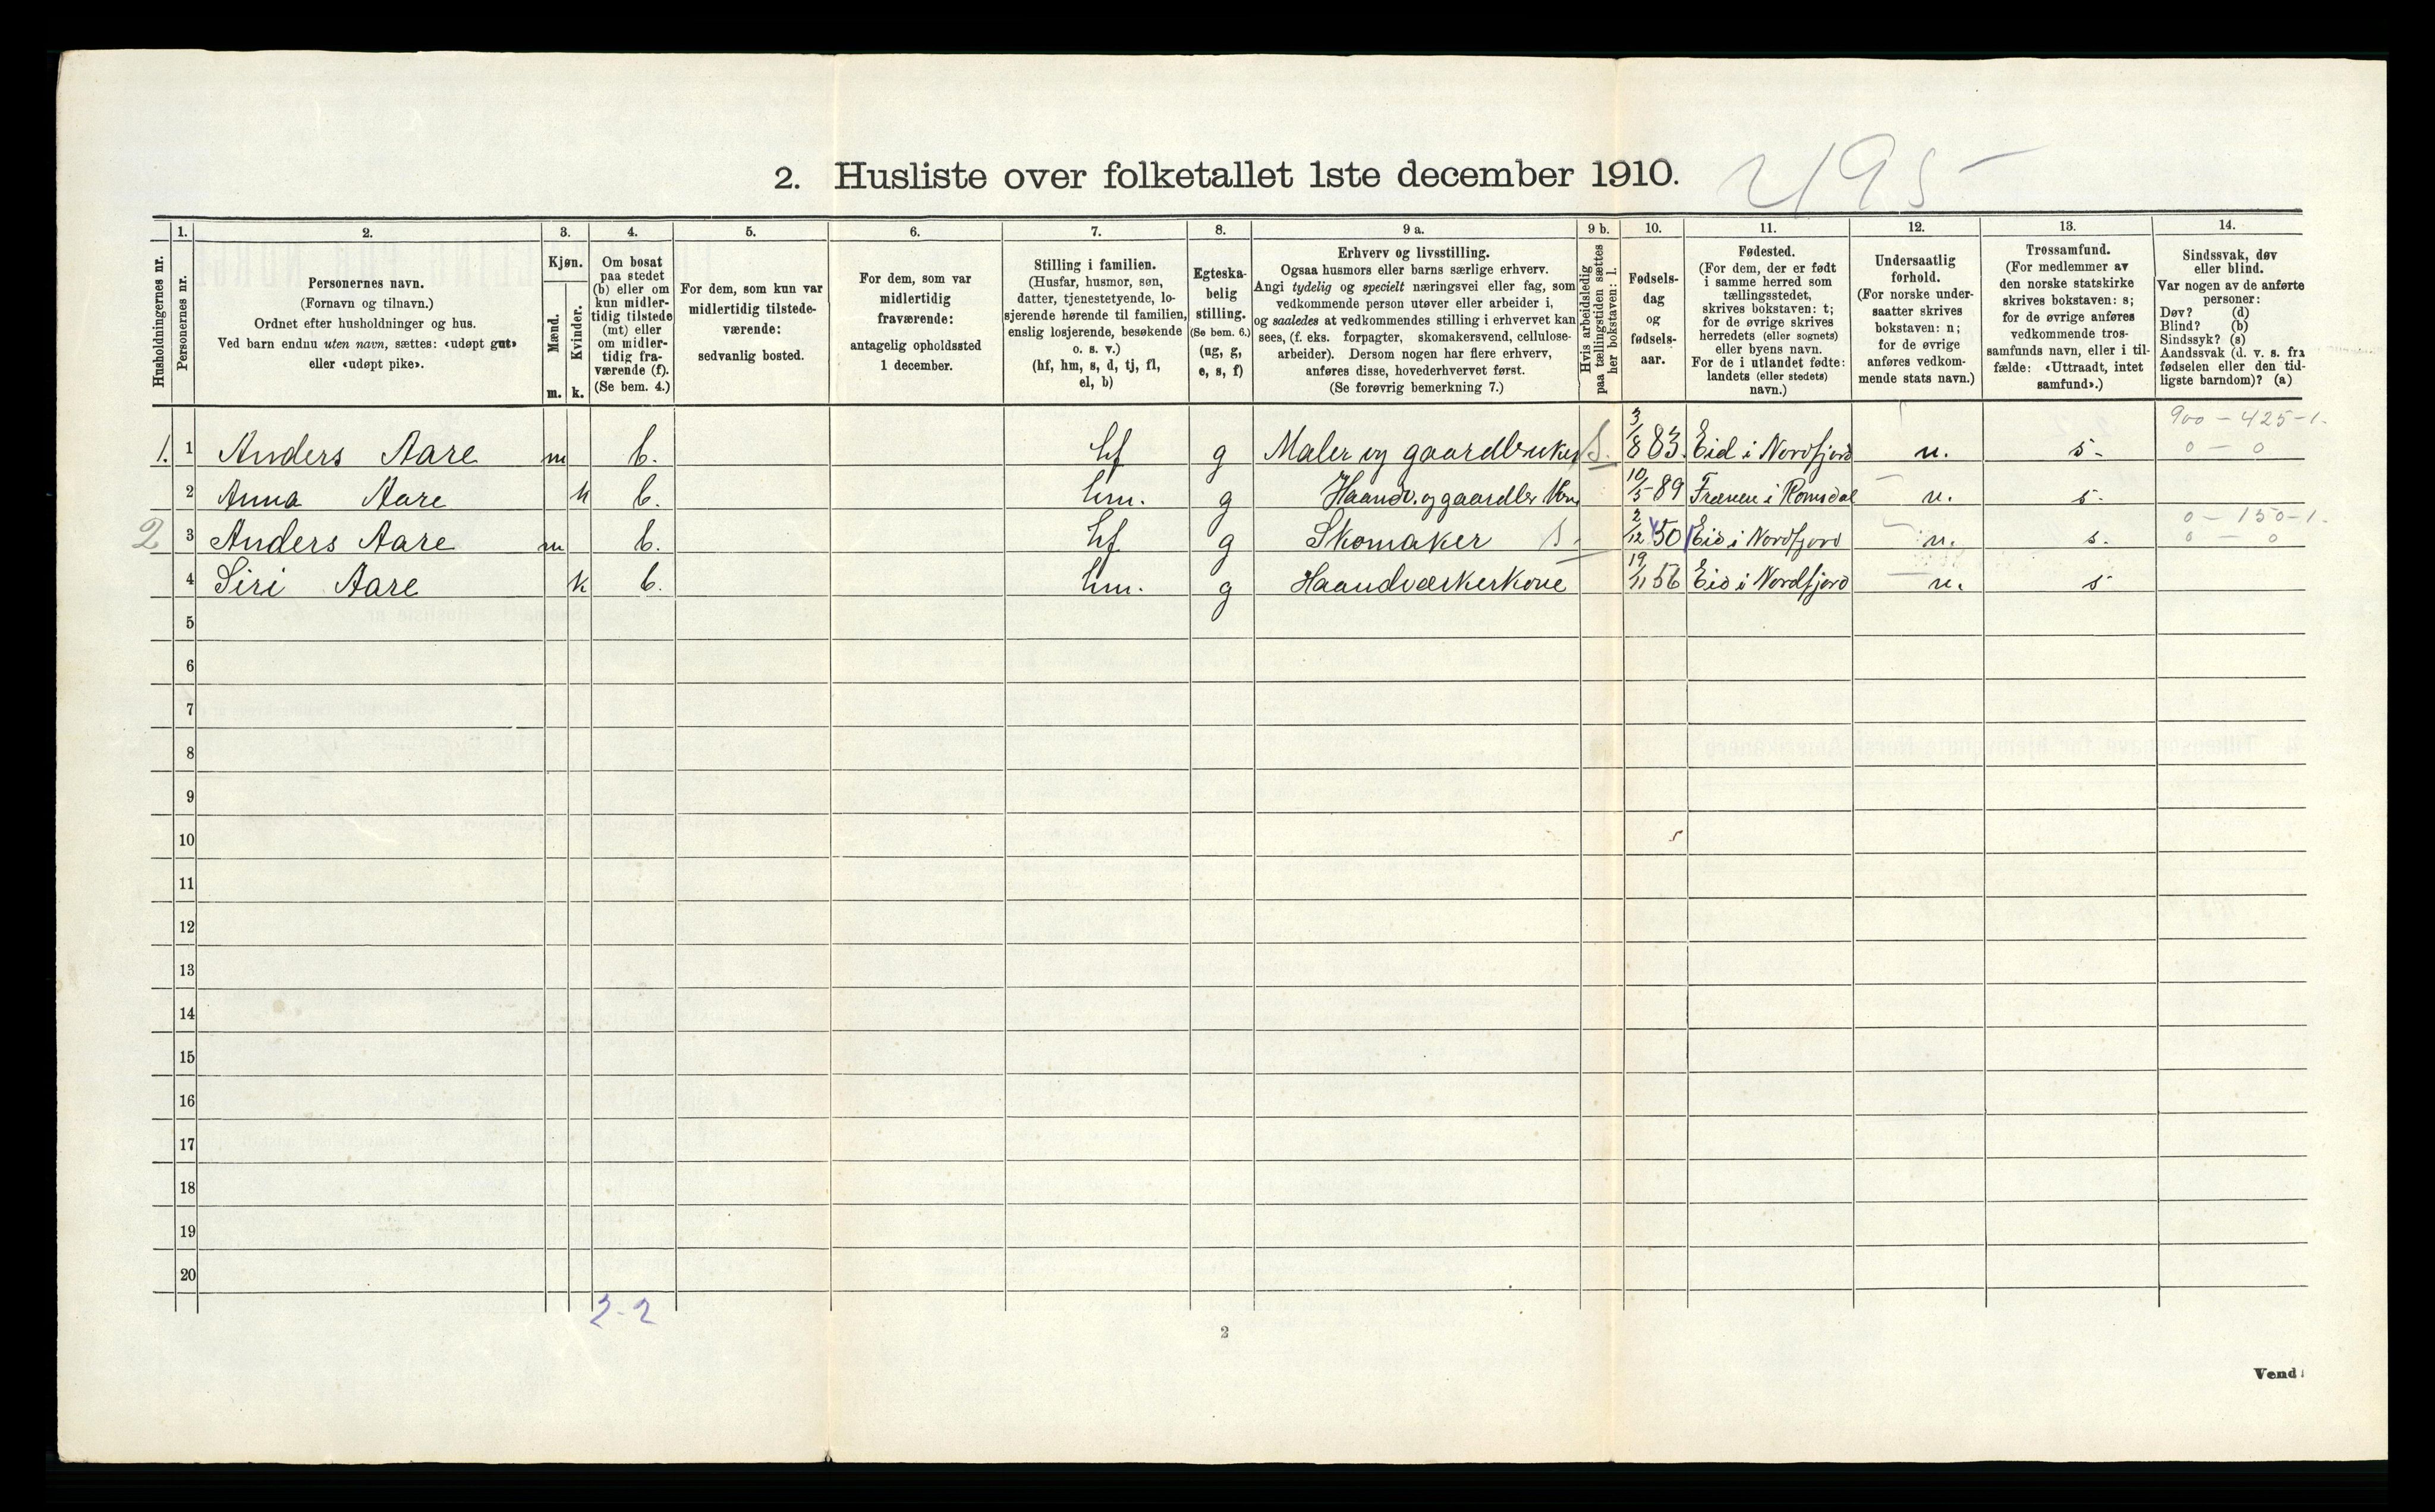 2. Husliste over folketallet 1ste december 1910. 495
Husholdningernes nr.
1.
Personernes nr.
2.
Personernes navn.
(Fornavn og tilnavn.)
Ordnet efter husholdninger og hus.
Ved barn endnu uten navn, sættes: «udøpt gut»
eller «udøpt pike».
3.
Kjøn.
Mænd.
Kvinder.
m. k.
4.
Om bosat
paa stedet
(b) eller om
kun midler-
tidig tilstede
(mt) eller
om midler-
tidig fra-
værende (f).
(Se bem. 4.)
5.
For dem, som kun var
midlertidig tilstede-
værende:
sedvanlig bosted.
6.
For dem, som var
midlertidig
fraværende:
antagelig opholdssted
1 december.
7.
Stilling i familien.
(Husfar, husmor, søn,
datter, tjenestetyende, lo-
sjerende hørende til familien,
enslig losjerende, besøkende
o. s. v.)
(hf, hm, s, d, tj, fl,
el, b)
8.
Egteska-
belig
stilling.
(Se bem. 6.)
(ug, g,
e, s, f)
9 a.
Erhverv og livsstilling.
Ogsaa husmors eller barns særlige erhverv.
Angi tydelig og specielt næringsvei eller fag, som
vedkommende person utøver eller arbeider i,
og saaledes at vedkommendes stilling i erhvervet kan
sees, (f. eks. forpagter, skomakersvend, cellulose-
arbeider). Dersom nogen har flere erhverv,
anføres disse, hovederhvervet først.
(Se forøvrig bemerkning 7.)
9 b.
Hvis arbeidsledig
paa tællingstiden sættes
her bokstaven: l.
10.
Fødsels-
dag
og
fødsels-
aar.
11.
Fødested.
(For dem, der er født
i samme herred som
tællingsstedet,
skrives bokstaven: t;
for de øvrige skrives
herredets (eller sognets)
eller byens navn.
For de i utlandet fødte:
landets (eller stedets)
navn.)
12.
Undersaatlig
forhold.
(For norske under-
saatter skrives
bokstaven: n;
for de øvrige
anføres vedkom-
mende stats navn.)
13.
Trossamfund.
(For medlemmer av
den norske statskirke
skrives bokstaven: s;
for de øvrige anføres
vedkommende tros-
samfunds navn, eller i til-
fælde: «Uttraadt, intet
samfund».)
14.
Sindssvak, døv
eller blind.
Var nogen av de anførte
personer:
Døv? (d)
Blind? (b)
Sindssyk? (s)
Aandssvak (d. v. s. fra
fødselen eller den tid-
ligste barndom)? (a)
900 - 425-1.
1. 1 Anders Aare m b. hf g Maler og gaardbruker S. 3/8 83. Eid i Nordfjord n. s. 0 - 0
2 Anna Aare k b. hm. g Haandv. og gaardbr. kone 10/5-89 Frænen i Romsdal n. s.
0 - 150-1.
2 3 Anders Aare m b. hf g Skomaker S. 2/12 50 Eid i Nordfjord n. s. 0 - 0
4 Siri Aare k b. hm. g Haandværkerkone 19/11 56 Eid i Nordfjord n. s
5
6
7
8
9
10
11
12
13
14
15
16
17
18
19
20
2-2
2
Vend